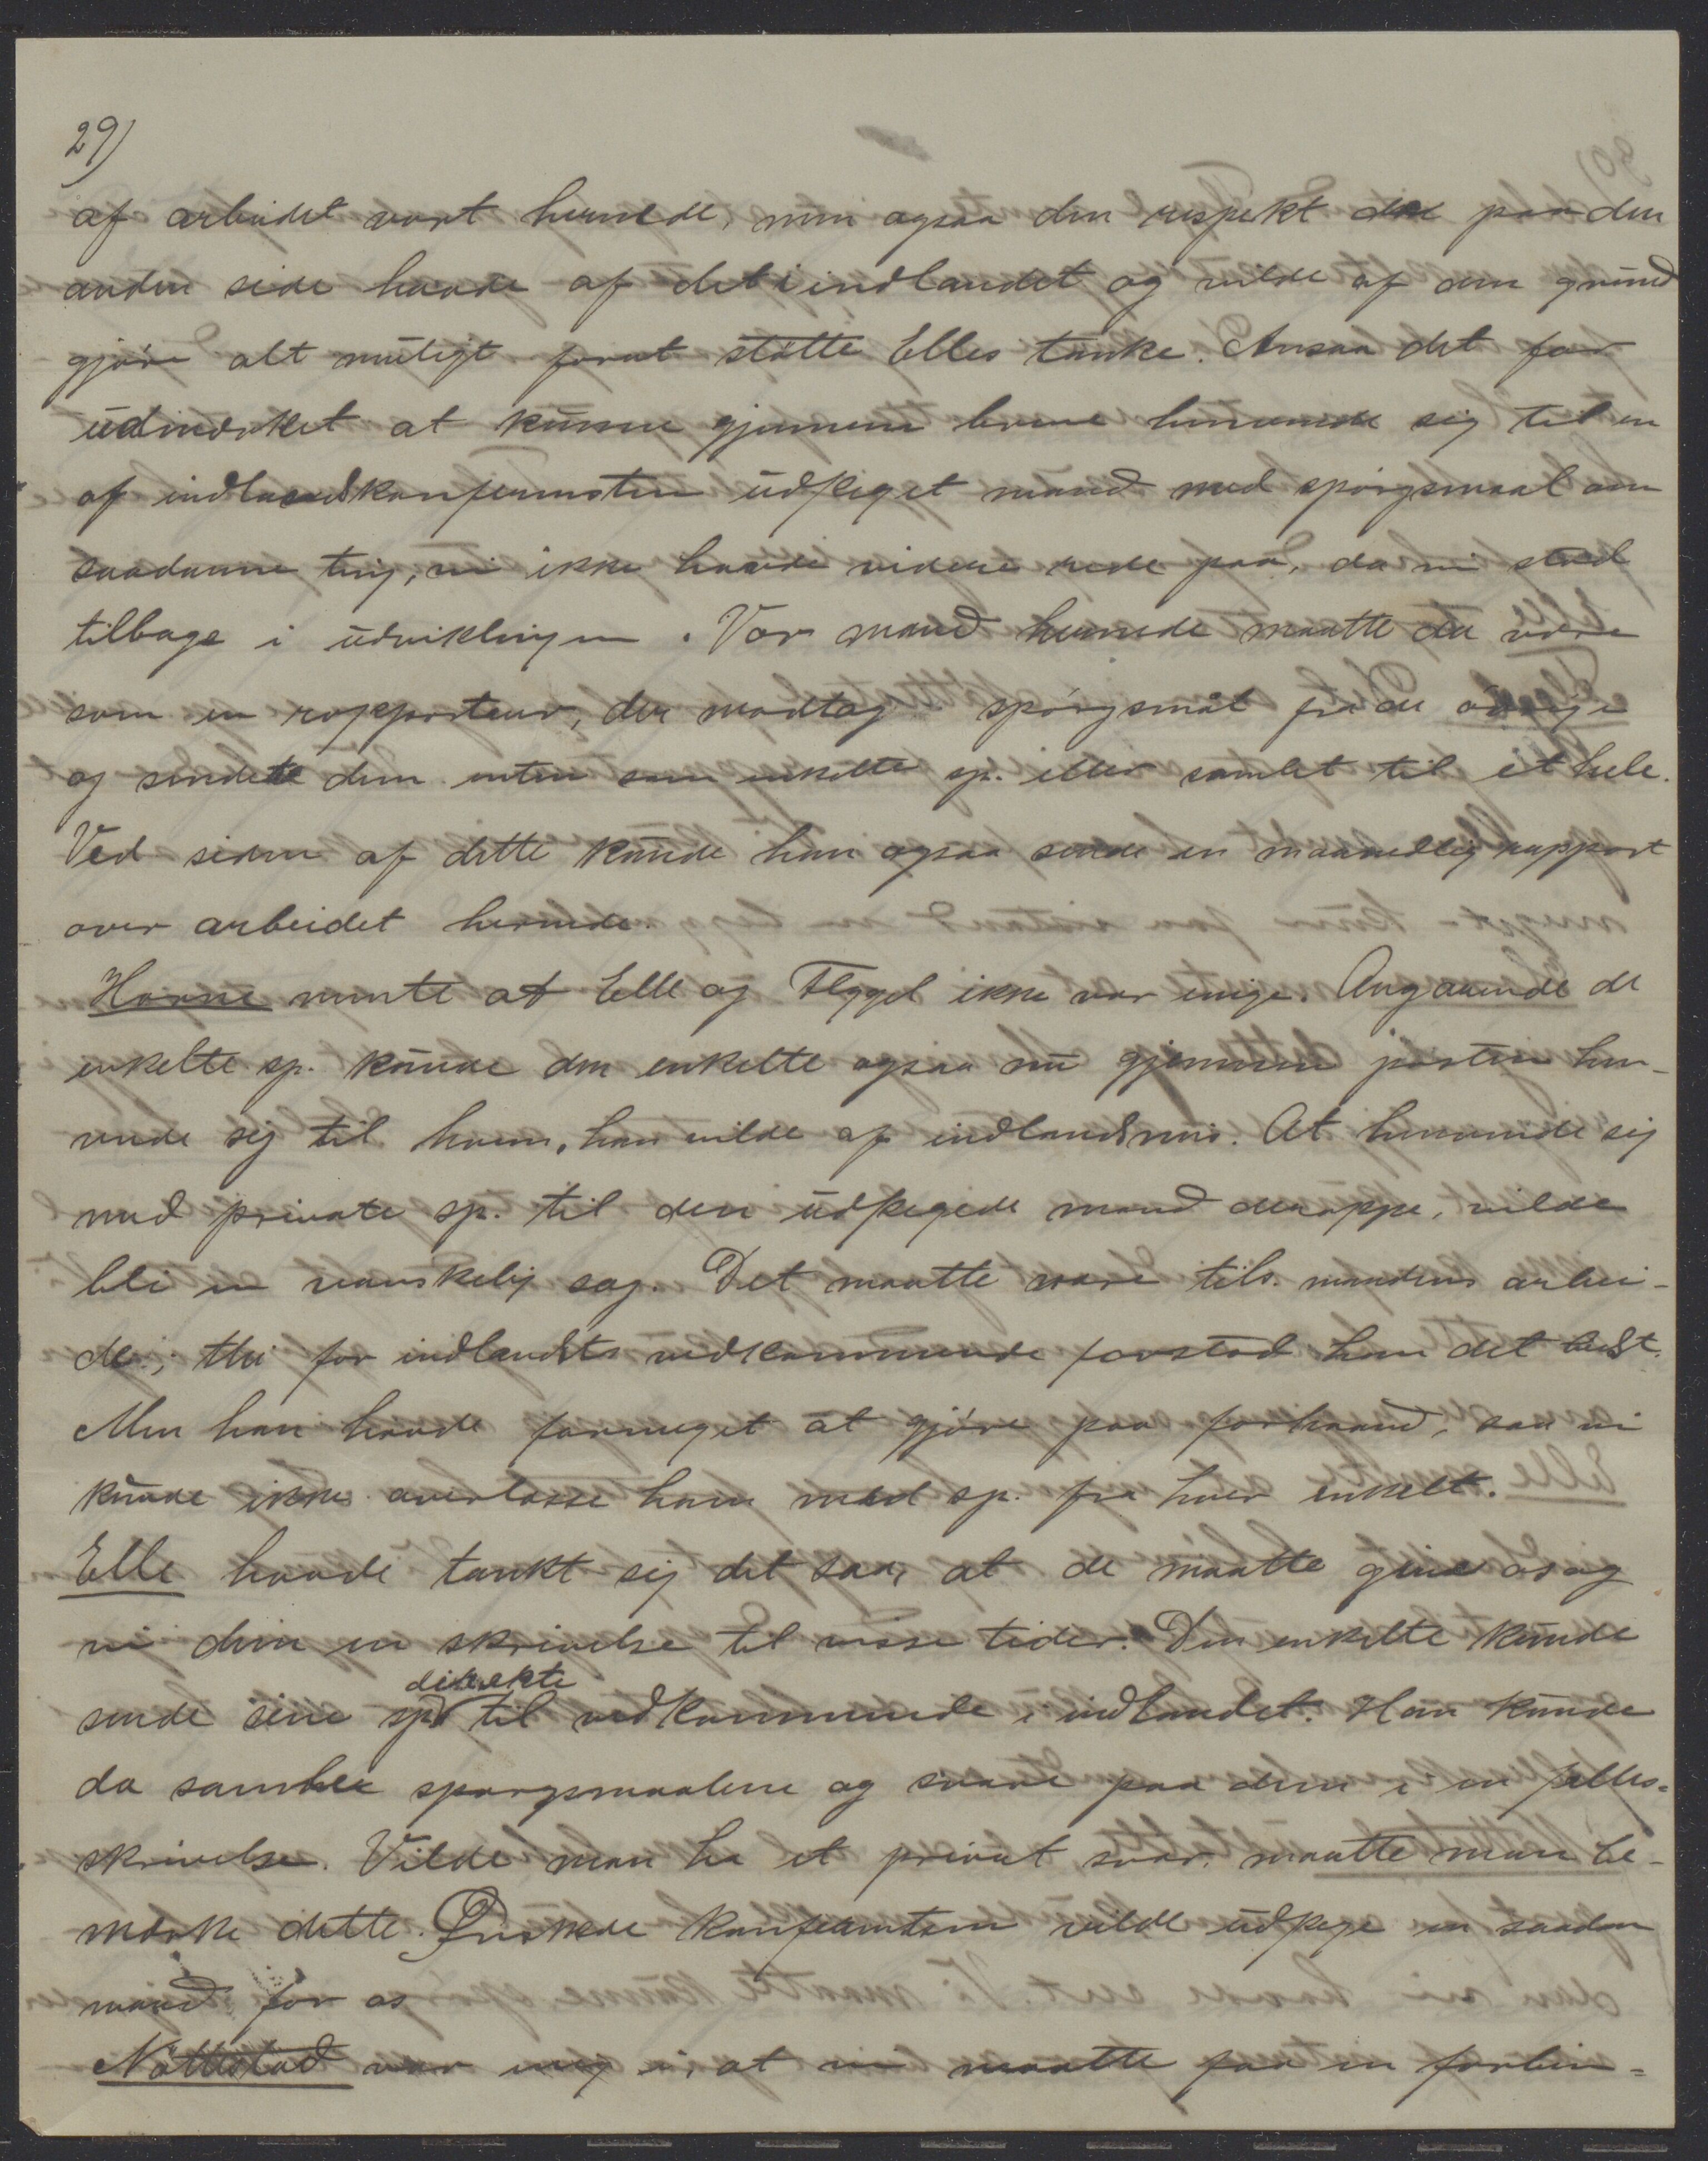 29)
af arbeidet vort hernede, men ogsaa den respekt de paa den
anden side havde af det i indlandet og vilde af den grund
gjøre alt muligt forat støtte Elles tanke. Ansaa det for
udmærket at kunne gjennem breve henvende sig til en
af indlandskonferensten udpeget mand med spørgsmaal om
saadanne ting, vi ikke havde videre rede paa, da vi stod
tilbage i udviklingen. Vor mand hernede maatte da være
som en rapporteur, der modtog spørgsmål fra de øvrige
og sendte dem enten som enkelte sp. eller samlet til et hele.
Ved siden af dette kunde han ogsaa sende en maanedlig rapport
over arbeidet hernede.
Horne mente at Elle og Flygel ikke var enige. Angaaende de
enkelte sp. kunde den enkelte ogsaa nu gjennem posten hen-
vende sig til hvem, han vilde af indlandsmis. At henvende sig
med private sp. til den udpegede mand deroppe, vilde
bli en vanskelig sag. Det maatte være tils. mandens arbei-
de; thi for indlandets vedkommende forstod han det bedst.
Men han havde formeget at gjøre paa forhaand, saa vi
kunde ikke overlæsse ham med sp. fra hver enkelt.
Elle havde tænkt sig det saa, at de maatte give os og
vi dem en skrivelse til visse tider. Den enkelte kunde
direkte
sende sine sp. til vedkommende i indlandet. Han kunde
da samle spørgsmaalene og svare paa dem i en fælles-
skrivelse. Vilde man ha et privat svar, maatte man be-
mærke dette. Ønskede konferentsen vilde udpege en saadan
mand for os
Nøttestad var enig i, at vi maatte faa en forbin-